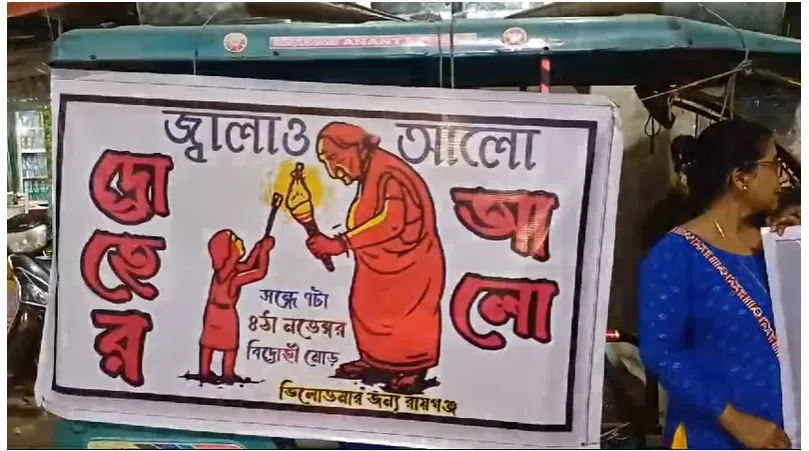 জ্বালাও আলো
দ্রোহের
আলো
সন্ধে ৭টা
৪ঠা নভেম্বর
বিদ্রোহী মোড়
তিলোত্তমার জন্য রায়গঞ্জ